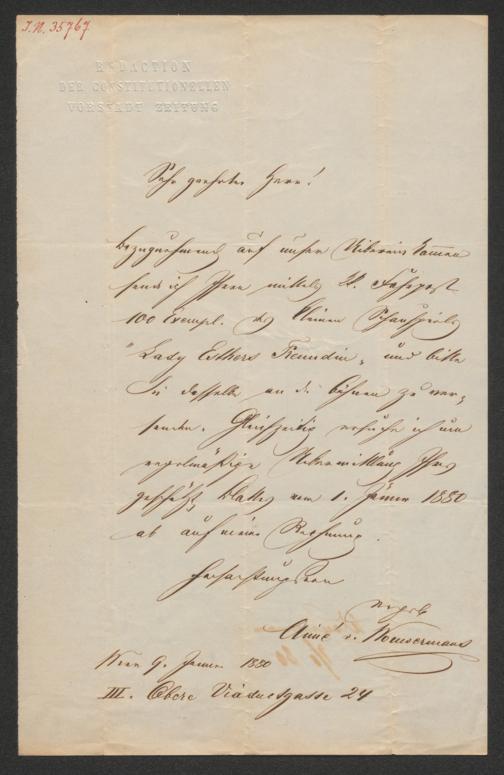 J.N. 35767
REDACTION
DER CONSTITUTIONELLEN
VORSTADT ZEITUNG
Sehr geehrter Herr!
Bezugnehmend auf unser Uibereinkommen
sende ich Ihnen mittels Fahrpost
100 Exempl. des kleinen Schauspieles
"Lady Esthers Freundin" und bitte
Sie dasselbe an die Bühnen zu ver-
senden. Gleichzeitig ersuche ich um
regelmäßige Uibermittlung Ihres
geschätzt. Blattes vom 1. Jänner 1880
ab auf meine Rechnung.
Hochachtungsvoll
Aimé v. Wouwermans
Wien 9. Jänner 1880
III. Obere Viaductgasse 24